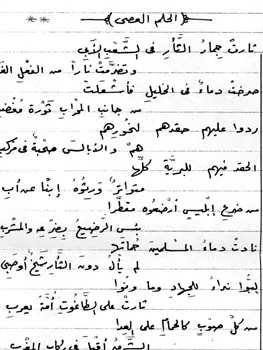 (الحلم العصي)
ثارت جمار الثأر في الشعب الأبي
وتضرمت نارا من الفعل
صرخت دماء في الخليل فأشعلت
من جانب المحراب ثورة
ردوا عليهم حقدهم لنحورهم
هم والأبالس صحبة في
الحقد فيهم للبرية كلها
متواتر ورثوه إبنا عن أب
من ضرع إبليس أرضعوه مقطرا
بئس الرضيع بضرعه والمشرب
نادت دماء المسلمين حماتها
لم يأل دون الثأر شيخ أو صبي
لبوا نداء للجهاد وما ونوا
ثارت على الطاغوت أمة يعرب
من كل صوب كالحمام على العدا
الشرق أقبل في ركاب المغرب